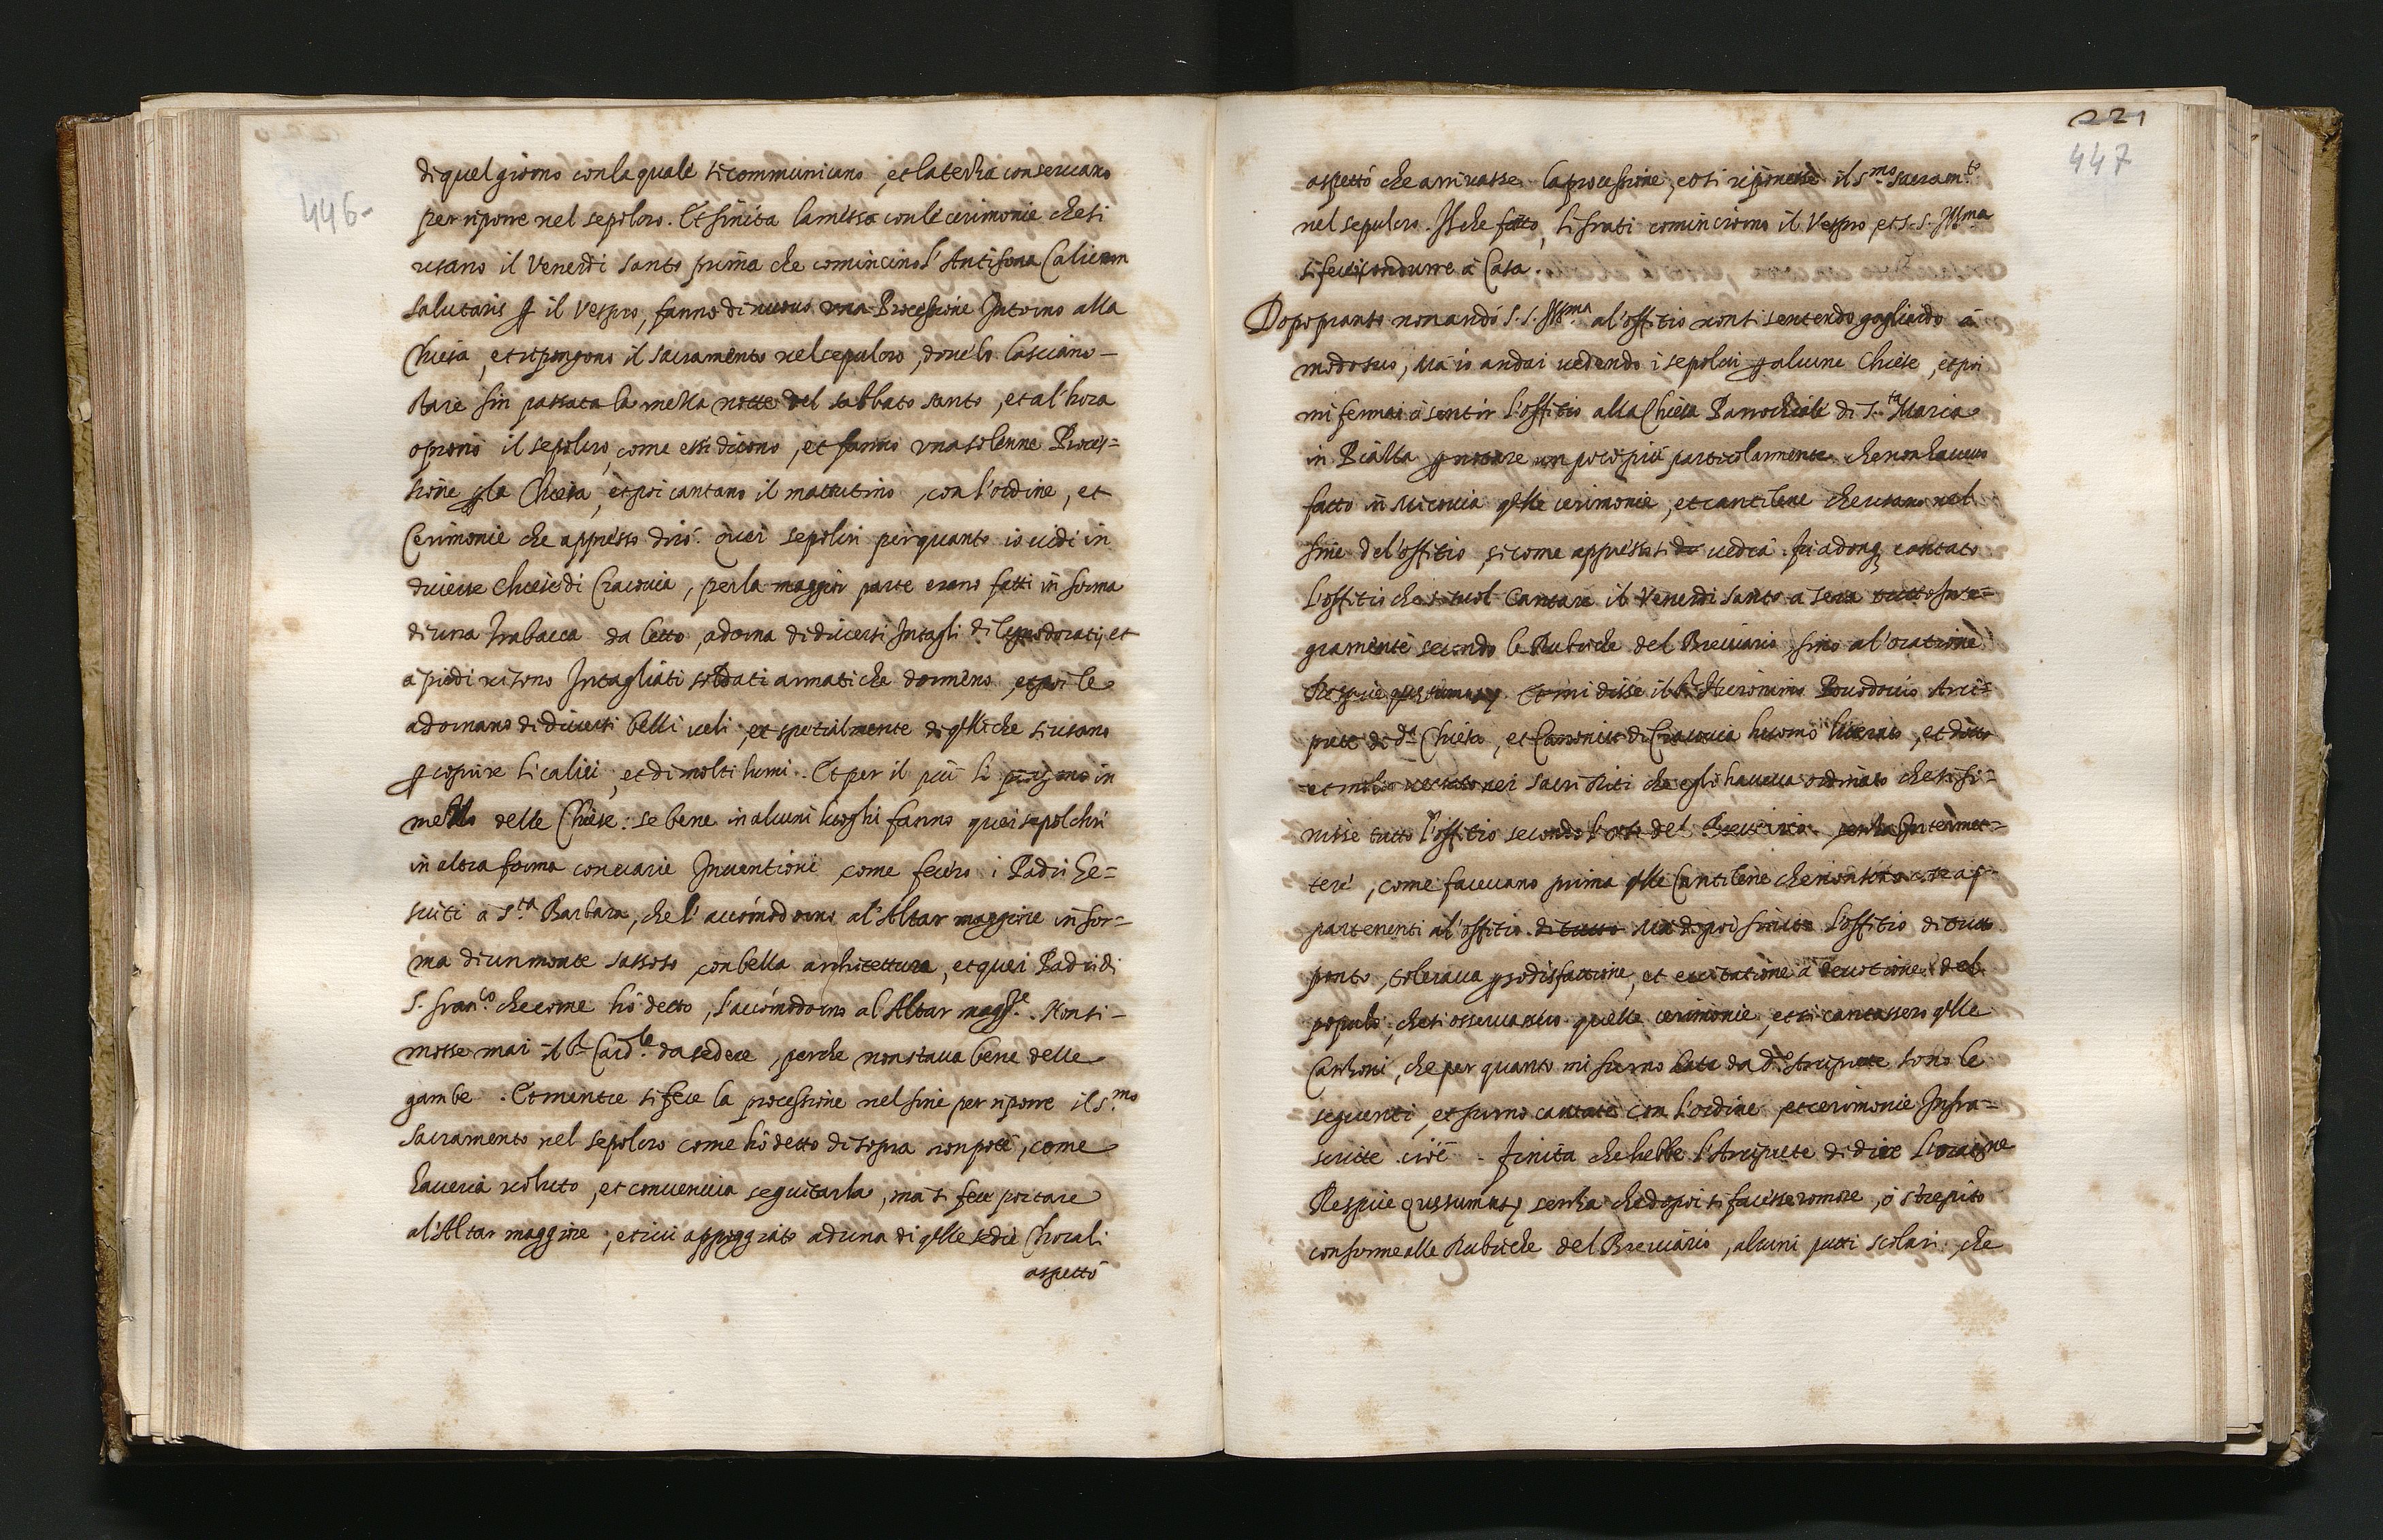 446.
di quel giorno con la quale si communicano, et la terza conseruano
per riporre nel sepolcro. Et finita la messa con le cerimonie che si
usano il Venerdi santo prima che comincino l'Antifona Calicem
salutaris ꝑ il Vespro, fanno di nuouo una Processione Intorno alla
Chiesa, et ripongono il sacramento nel sepulcro, doue lo lasciano
stare sin passata la mezza notte del sabbato santo, et al'hora
oprono il sepolcro, come essi dicono, et fanno una solenne Proces=
sione ꝑ la Chiesa, et poi cantano il mattutino, con l'ordine, et
Cerimonie che appresso dirò. Quei sepolcri per quanto io uidi in
diuerse chiese di Cracouia, per la maggior parte erano fatti in forma
di una trabacca da letto, adorna di diuersi Intagli di legno dorati, et
a piedi ui sono Intagliati soldati armati che dormeno, et poi le
adornano di diuersi belli ueli, et spetialmente di qlli che si usano
ꝑ coprire li calici, et di molti lumi. Et per il più li pongono in
mezzo delle Chiese: se bene in alcuni luoghi fanno quei sepolchri
in altra forma con uarie Inuentioni come fecero i Padri Ge=
suiti a S.ta Barbara, che l'accomodorno al'Altar maggiore in for=
ma di un monte sassoso, con bella architettura, et quei Padri di
S. Fran.co che come hò detto, l'accómodorno al'Altar magg.re. Non si
mosse mai il S.r Card.le da sedere, perche non staua bene delle
gambe. Et mentre si fece la processione nel fine per riporre il S.mo
Sacramento nel sepolcro come hò detto di sopra non potè, come
haueria uoluto, et conueniua seguitarla, ma si fece portare
al'Altar maggiore, et iui appoggiato ad una di qlle sedie Chorali
aspettò
221
447
aspettó che arriuasse la processione, et si riponesse il S.mo Sacram.to
nel sepulcro. Il che fatto, li frati cominciorno il Vespro, et S. S. Ill.ma
si fece condurre à Casa.
Dopo pranso non andó S. S. Ill.ma al'offitio non si sentendo gagliardo à
modo suo, Ma io andai uedendo i sepolcri ꝑ alcune Chiese, et poi
mi fermai à sentir l'offitio alla Chiesa Parrochiale di S.ta Maria
in Piazza ꝑ notare un poco più particolarmente che non haueuo
fatto in qlle cerimonie, et cantilene che usano nel
fine del'offitio, si come appresso si uedrà. Fu adonq, cantato
l'offitio che si suol Cantare il Venerdi santo a sera tutto Inte=
gramente secondo le Rubriche del Breuiario sino al'oratione
Respice quesumus. Et mi disse il S.r Hieronimo Arci=
prete di d.a Chiesa, et Canonico di Cracouia huomo literato, et dotto
et molto uersato nei sacri Riti che egli haueua ordinato che si fi=
nisse tutto l'offitio secondo l'uso del Breuiario senza Intermet=
tere, come faceuano prima qlle Cantilene che non sono cose ap=
partenenti al'offitio di tutto. Ma dopoi finito l'offitio di tutto
ponto, toleraua ꝑ sodisfattione, et excitatione a deuotione del
populo, che si osseruassero quelle cerimonie, et si cantassero qlle
Canzoni, che per quanto mi furno date da d.o Arciprete sono le
seguenti, et furno cantate con l'ordine, et cerimonie Infra=
scritte cioè. Finita che hebbe l'Arciprete di dire l'oratione
Respice quesumus, senza che dopoi si facesse romore, ò strepito
conforme alle Rubriche del Breuiario, alcuni putti scolari che